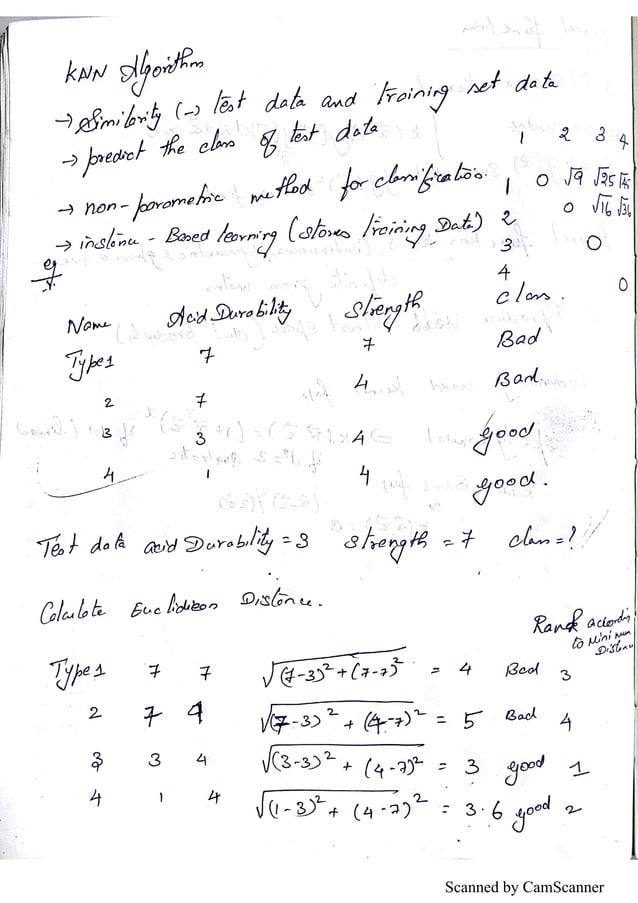 KNN Algorithm
→ Similarity (→) test data and training set data
→ predict the class of test data
→ non-parametric method for classification.
→ instance-Based learning (stores training Data)
eg
1 2 3 4
1 0 √9 √25 √45
2 0 √16 √36
3 0
4 0
Name Acid Durability Strength class.
Type1 7 7 Bad
2 7 4 Bad
3 3 4 good
4 1 4 good.
Test data acid Durability = 3 strength = 7 class = ?
Calculate Euclidean Distance.
Rank according
to Minimum
Distance
Type1 7 7 √(7-3)² + (7-7)² = 4 Bad 3
2 7 4 √(7-3)² + (4-7)² = 5 Bad 4
3 3 4 √(3-3)² + (4-7)² = 3 good 1
4 1 4 √(1-3)² + (4-7)² = 3.6 good 2
Scanned by CamScanner